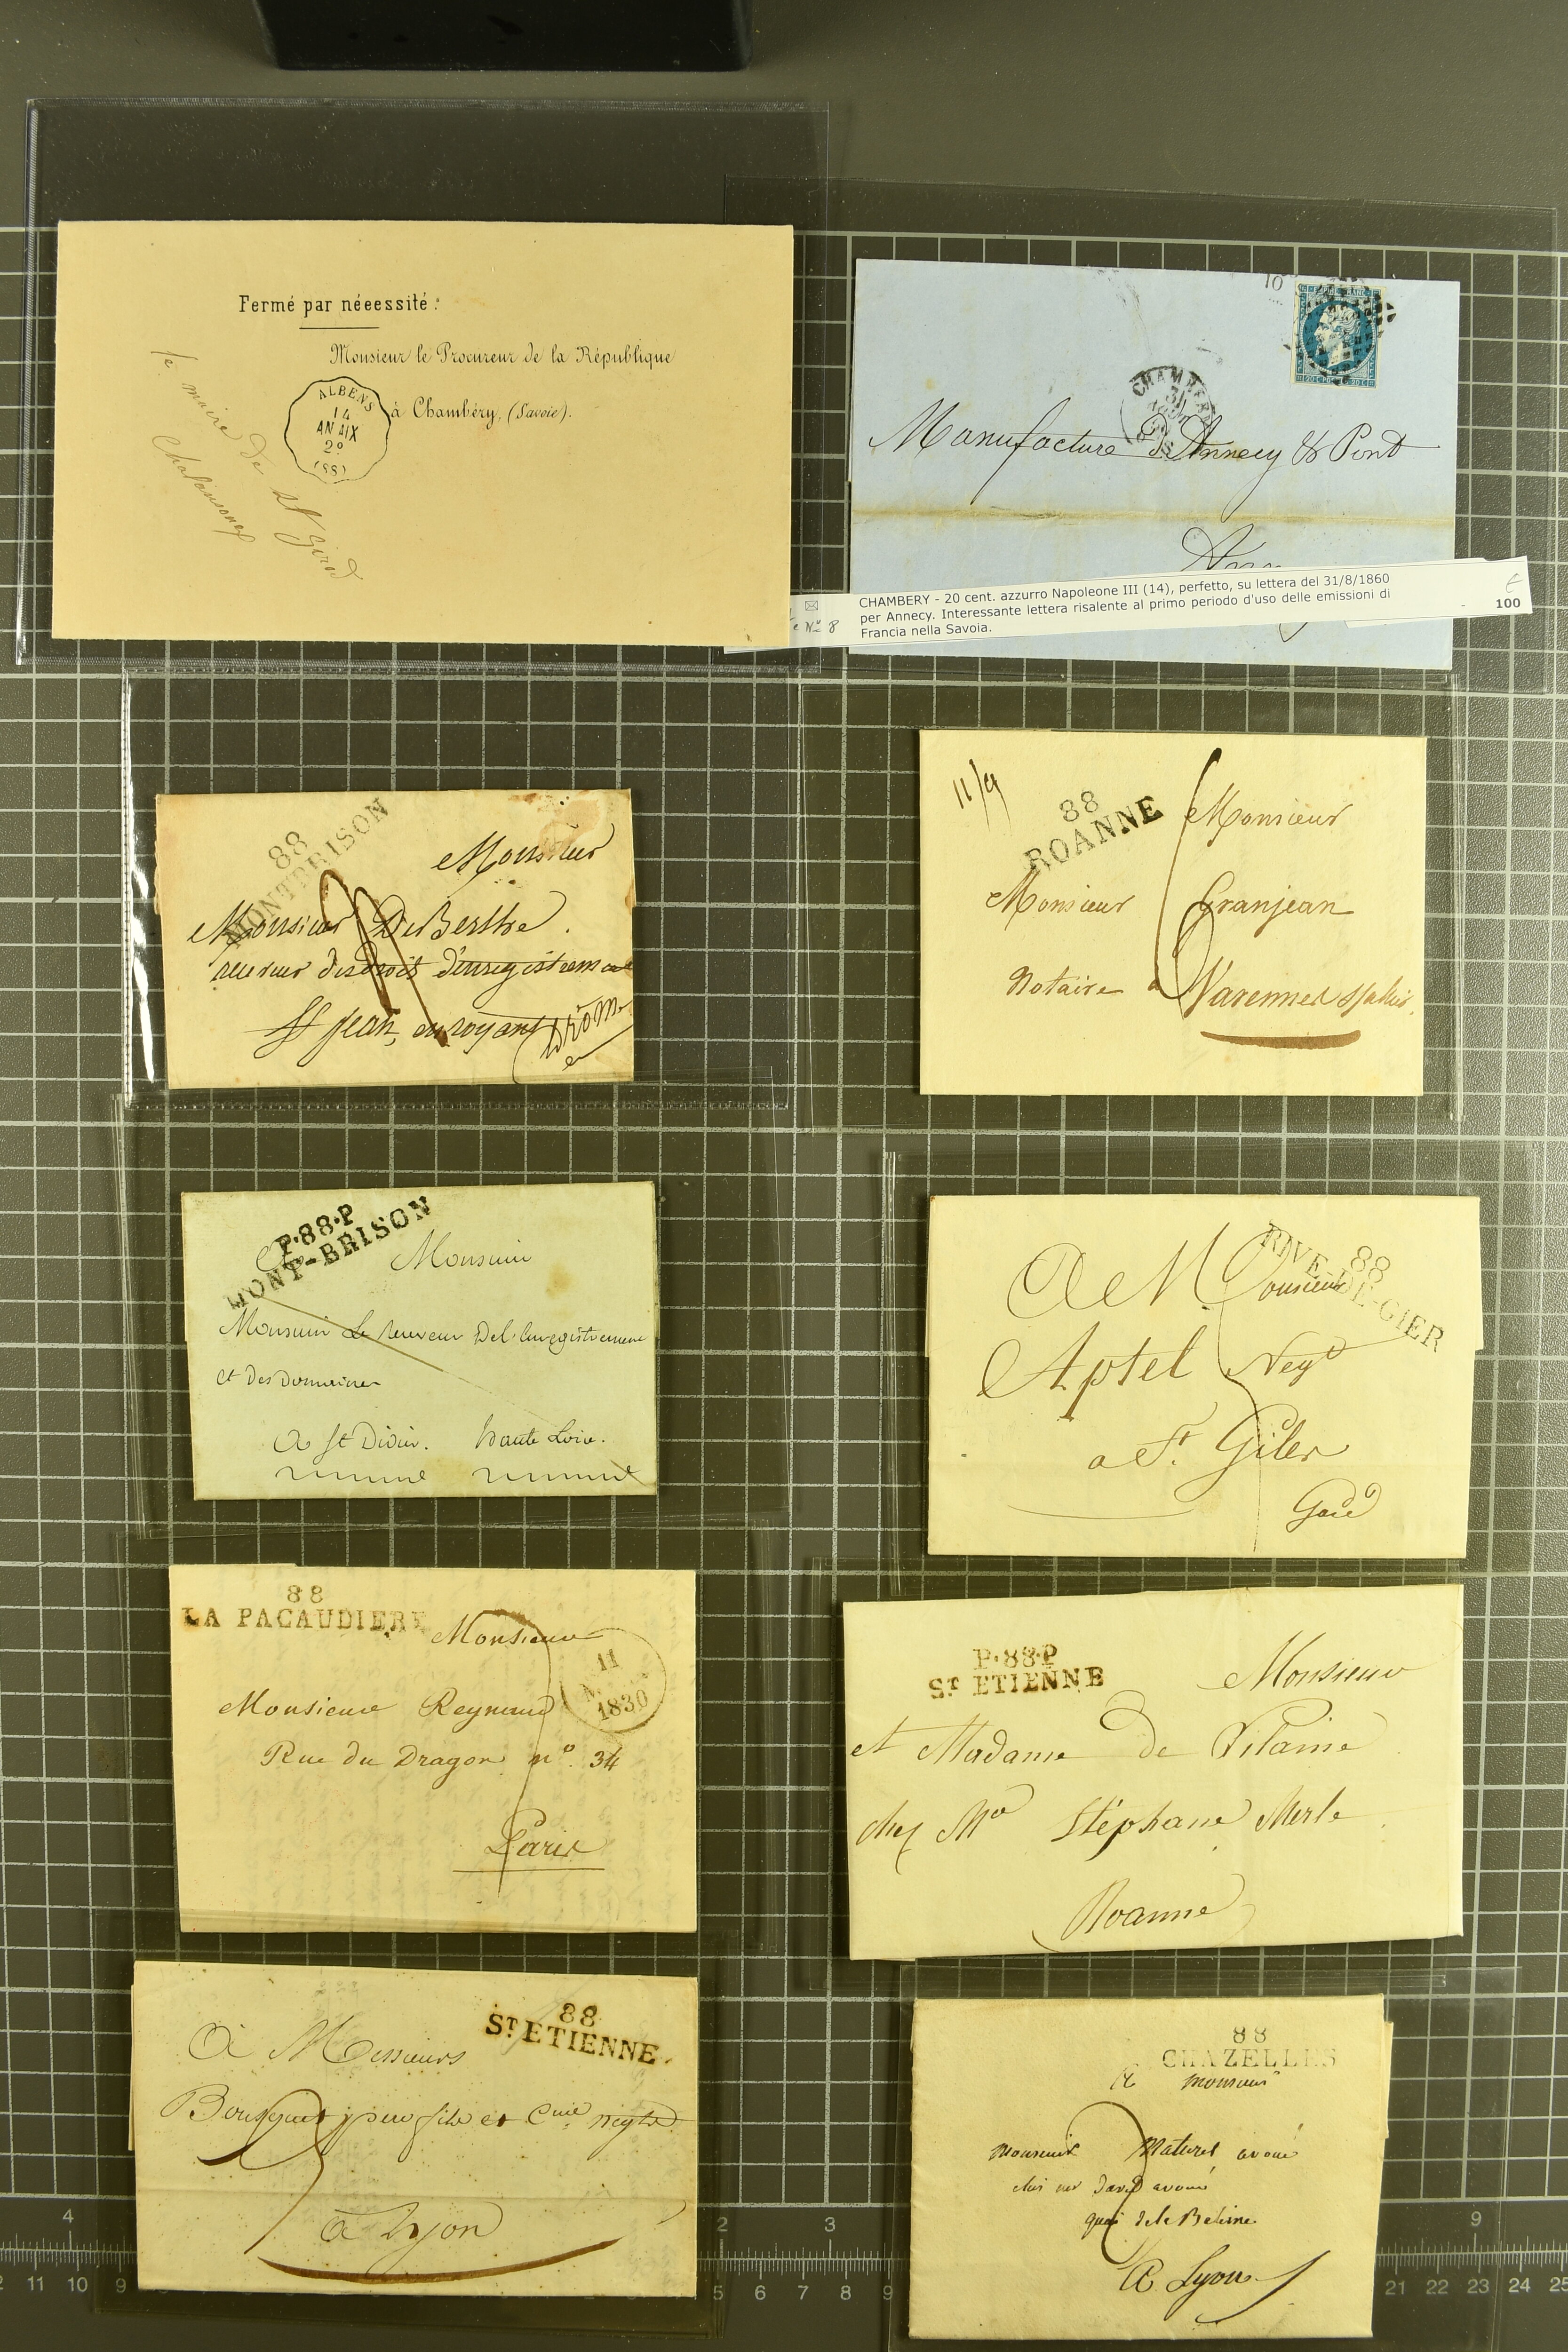 Fermé par néeessité :
Monsieur le Procureur de la République
à Chambéry, (Savoie).
ALBENS
14
2º
(88)
le maire de St Girod
CHAMBERY
31
AOUT
Manufacture d'Annecy & Pont
CHAMBERY - 20 cent. azzurro Napoleone III (14), perfetto, su lettera del 31/8/1860
per Annecy. Interessante lettera risalente al primo periodo d'uso delle emissioni di
Francia nella Savoia.
100
88
MONTBRISON
Monsieur
Monsieur DeBerthe.
St Jean, en royans
11/9
88
ROANNE
Monsieur
Monsieur Granjean
Notaire a Varennes
P.88.P
MONT-BRISON
A Monsieur
Monsieur Le receveur Del'enregistrement
et Des Domaines
A St Didier. haute Loire.
88
RIVE-DE-GIER
A Monsieur
Aptel Negt
a St. Giles
Gard
88
LA PACAUDIERE
Monsieur
11
1830
Monsieur Reynaud
Rue du Dragon nº. 34
Paris
P.88.P
ST ETIENNE
Monsieur
et Madame de Vilaine
chez Mr Stéphane Merle
Roanne
88
ST ETIENNE
A Messieurs
Bousquet pere fils et Cnie negts
a Lyon
88
CHAZELLES
A Monsieur
Monsieur Maturel avoué
chés mr David avoué
quai de la Baleine
A Lyon
4
2
3
9
12 11 10 9
5 6 7 8
21 22 23 24 25